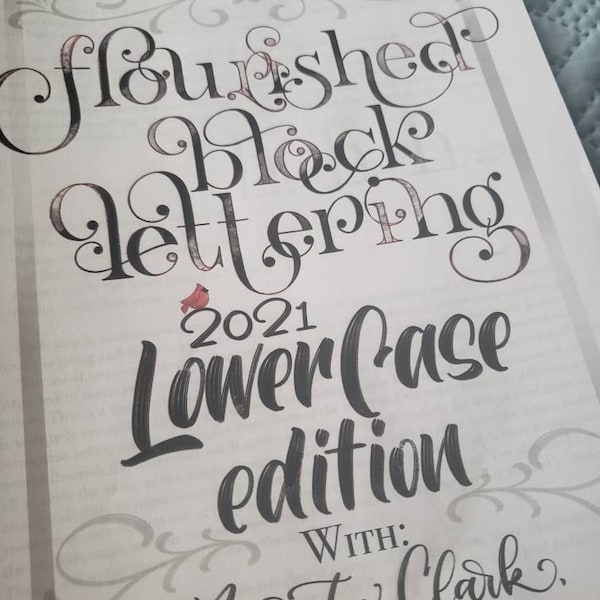 flourished
block
lettering
2021
LowerCase
edition
WITH:
Clark.